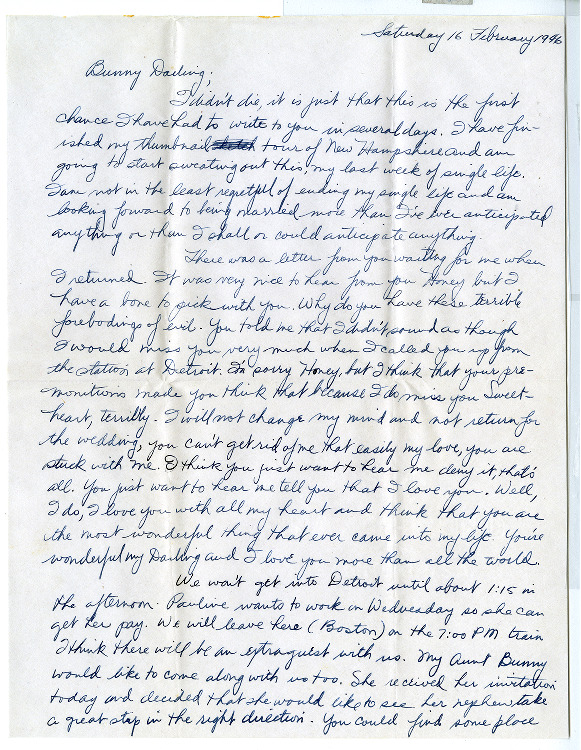 Saturday 16 February 1946
Bunny Darling;
I didn't die, it is just that this is the first
chance I have had to write to you in several days. I have fin-
ished my thumbnail tour of New Hampshire and am
going to start sweating out this, my last week of single life.
I am not in the least regretful of ending my single life and am
looking forward to being married more than I've ever anticipated
anything or than I shall or could anticipate anything.
There was a letter from you waiting for me when
I returned. It was very nice to hear from you Honey but I
have a bone to pick with you. Why do you have these terrible
forebodings of evil. You told me that I didn't sound as though
I would miss you very much when I called you up from
the station at Detroit. I'm sorry Honey, but I think that your pre-
monitions made you think that because I do miss you Sweet-
heart, terribly. I will not change my mind and not return for
the wedding, you can't get rid of me that easily my love, you are
stuck with me. I think you just want to hear me deny it, that's
all. You just want to hear me tell you that I love you. Well,
I do, I love you with all my heart and think that you are
the most wonderful thing that ever came into my life. You're
wonderful my Darling and I love you more than all the world.
We won't get into Detroit until about 1:15 in
the afternoon. Pauline wants to work on Wednesday so she can
get her pay. We will leave here (Boston) on the 7:00 PM train
I think there will be an extra guest with us. My Aunt Bunny
would like to come along with us too. She received her invitation
today and decided that she would like to see her nephew take
a great step in the right direction. You could find some place